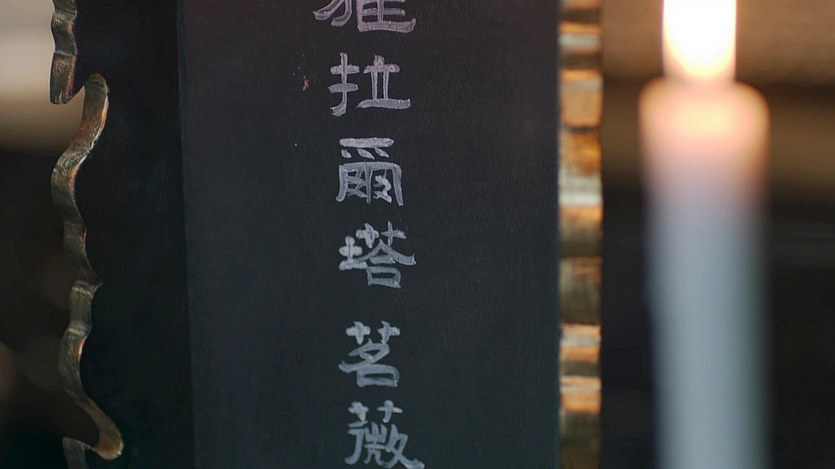 拉爾塔茗薇